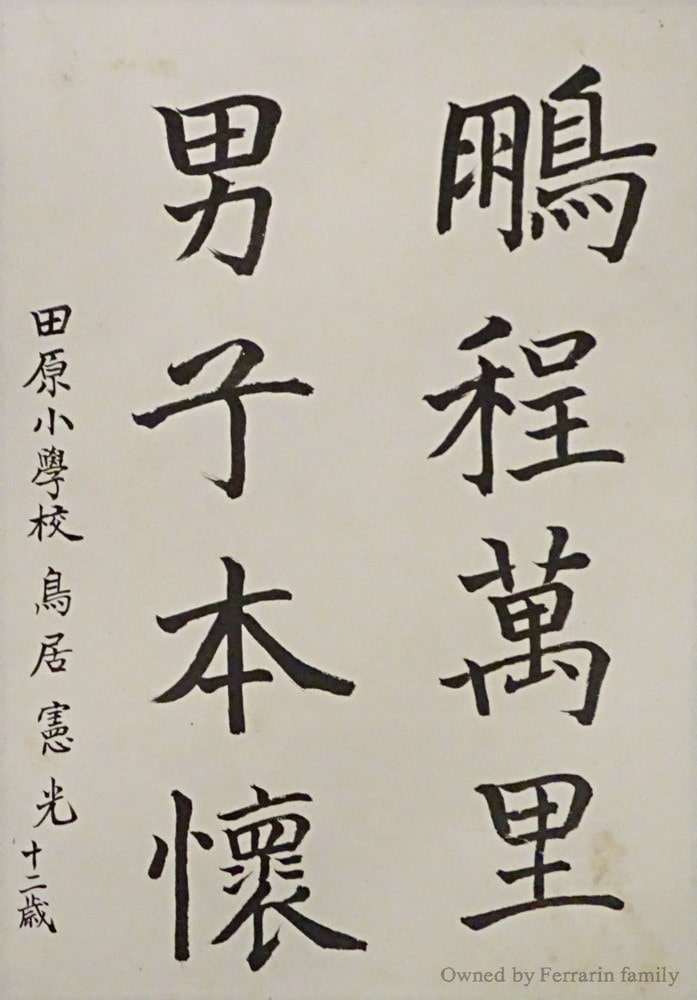 鵬程萬里
男子本懷
田原小學校 鳥居憲光 十二歳
Owned by Ferrarin family